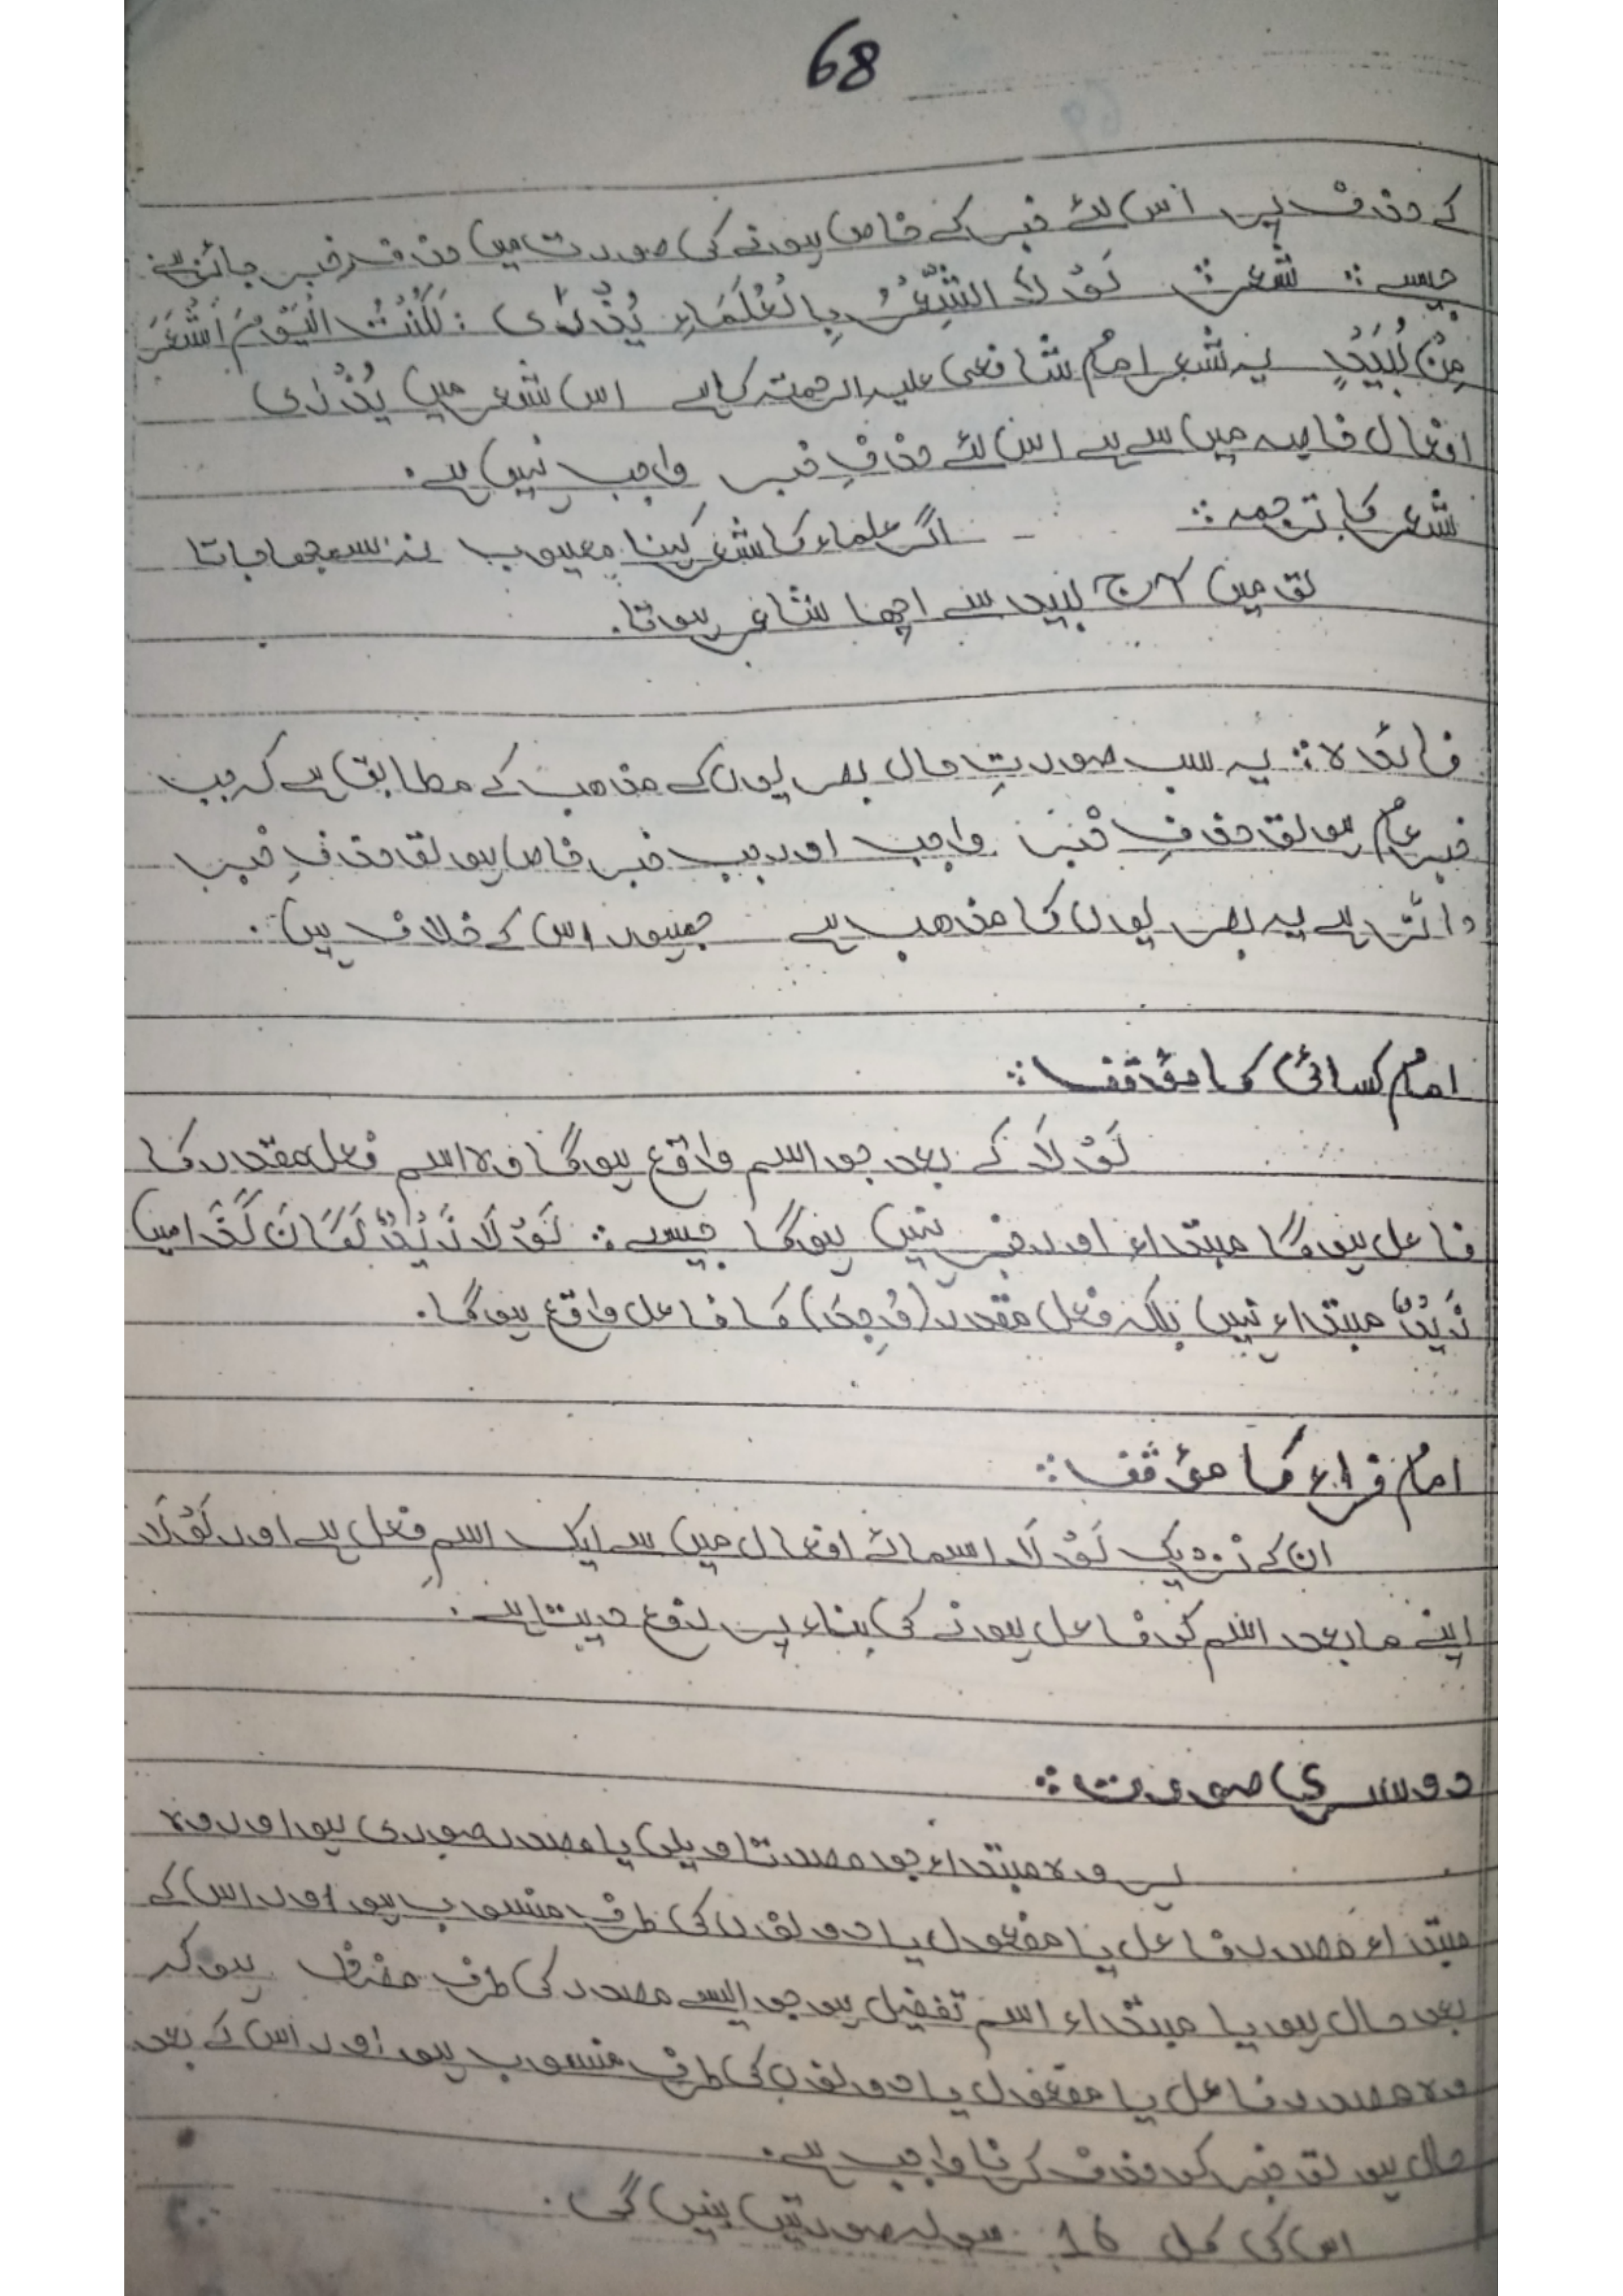 68
کے حذف پر اس لئے خبر کے خاص ہونے کی صورت میں حذفِ خبر جائز ہے
جیسے :: شعر :: لَوْ لَا الشِّعْرُ بِالْعُلَمَاءِ يُزْرِی : لَكُنْتُ الْيَوْمَ اَشْعَرَ
مِنْ لَبِيْدٍ یہ شعر امام شافعی علیہ الرحمتہ کا ہے اس شعر میں یُزْرِی
افعال خاصہ میں سے ہے اس لئے حذفِ خبر واجب نہیں ہے۔
شعر کا ترجمہ :: - اگر علماء کا شعر کہنا معیوب نہ سمجھا جاتا
تو میں آج لبید سے اچھا شاعر ہوتا۔
فائدہ :: یہ سب صورتِ حال بصریوں کے مذھب کے مطابق ہے کہ جب
خبر عام ہو تو حذفِ خبر واجب اور جب خبر خاص ہو تو حذفِ خبر
جائز ہے یہ بصریوں کا مذھب ہے جمہور اس کے خلاف ہیں۔
امام کسائی کا مؤقف ::
لَوْ لَا کے بعد جو اسم واقع ہوگا وہ اسم فعل مقدر کا
فاعل ہوگا مبتداء اور خبر نہیں ہوگا جیسے :: لَوْ لَا زَيْدٌ لَكَانَ كَذَا میں
زَيْدٌ مبتداء نہیں بلکہ فعل مقدر (وُجِدَ) کا فاعل واقع ہوگا۔
امام فراء کا مؤقف ::
ان کے نزدیک لَوْ لَا اسمائے افعال میں سے ایک اسمِ فعل ہے اور لَوْ لَا
اپنے مابعد اسم کو فاعل ہونے کی بناء پر رفع دیتا ہے۔
دوسری صورت ::
ہر وہ مبتداء جو مصدر تاویلی یا مصدر صوری ہو اور وہ
مبتداء مصدر فاعل یا مفعول یا دونوں کی طرف منسوب ہو اور اس کے
بعد حال ہو یا مبتداء اسم تفضیل ہو جو ایسے مصدر کی طرف مضاف ہو کہ
وہ مصدر فاعل یا مفعول یا دونوں کی طرف منسوب ہو اور اس کے بعد
حال ہو تو خبر کو حذف کرنا واجب ہے۔
اس کی کل 16 سولہ صورتیں بنیں گی۔